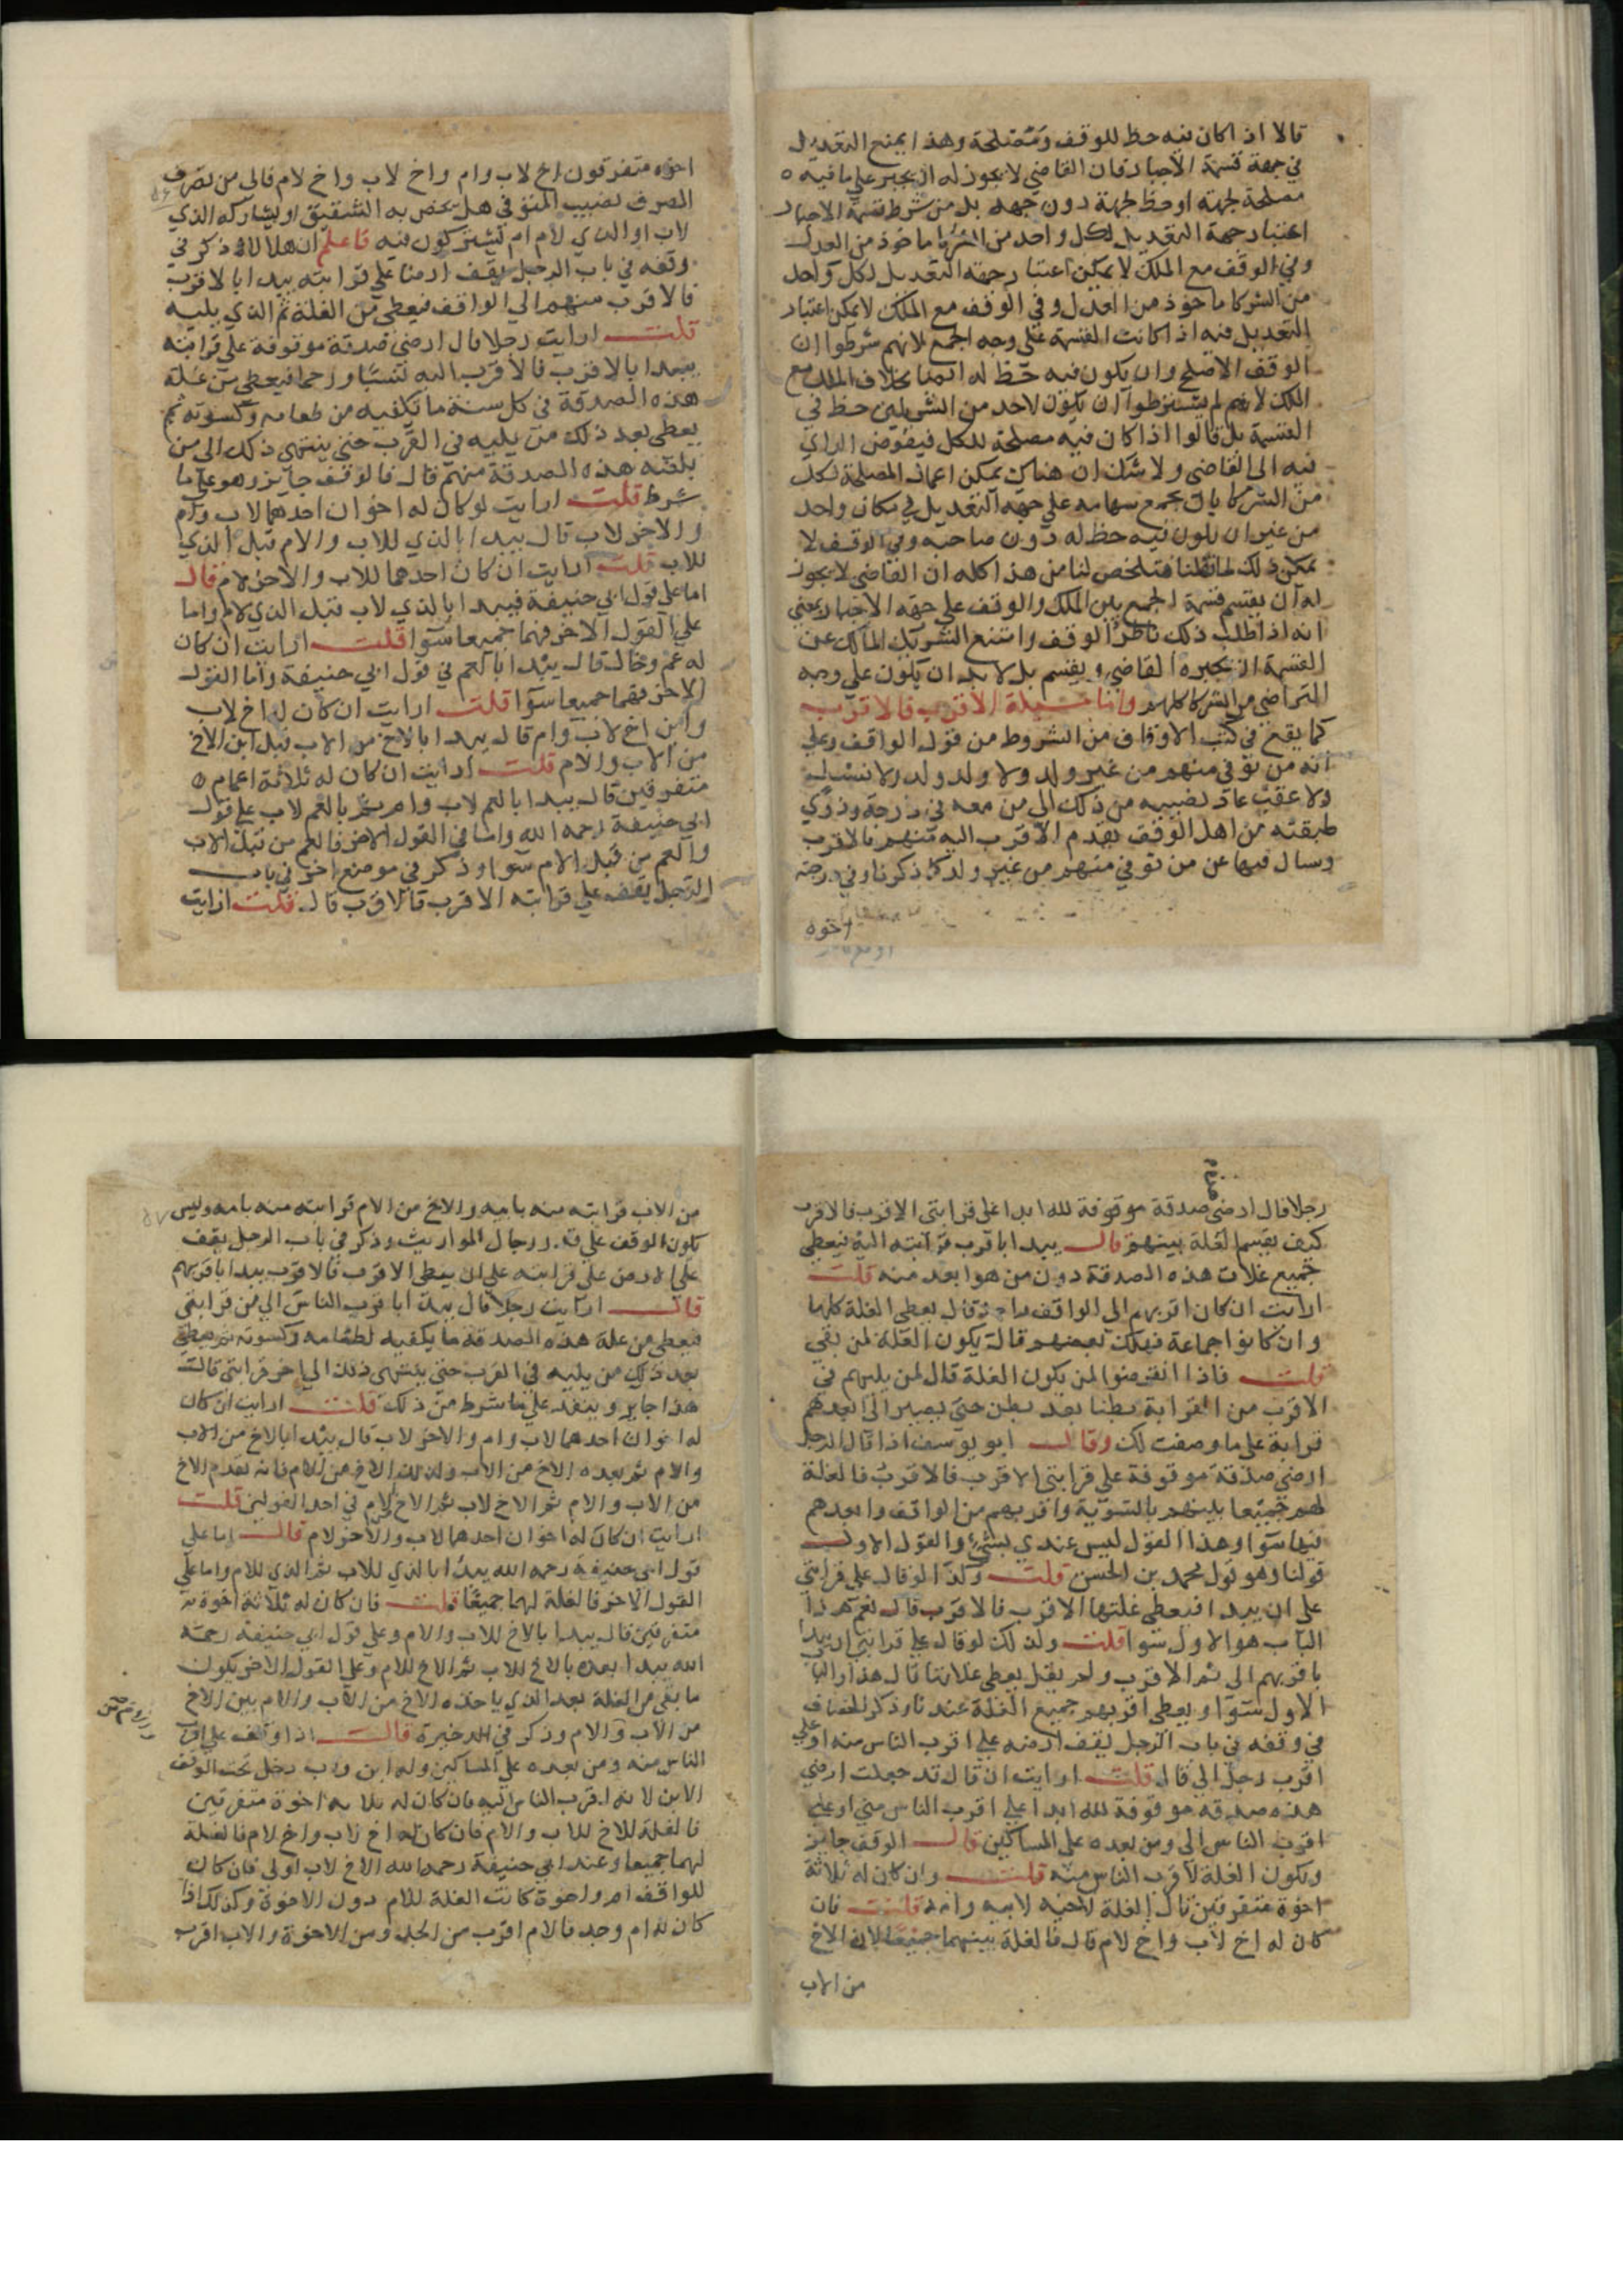 قالا اذا كان فيه حظ للوقف ومصلحة وهذا يمنع التعديل
في جهة قسمة الاجبار فان القاضي لا يجوز له ان يجبر علي ما فيه
مصلحة لجهة او حظ لجهة دون جهه بل من شرط قسمة الاجبار
اعتبار جهة التعديل لكل واحد من الشركا ما خوذ من العدل
وفي الوقف مع الملك لا يمكن اعتبار جهة التعديل لكل واحد
من الشركا ماخوذ من العدل وفي الوقف مع الملك لا يمكن اعتبار
التعديل فيه اذا كانت القسمة علي وجه الجمع لانهم شرطوا ان
الوقف الاصلح وان يكون فيه حظ له اتما بخلاف الملك مع
الملك لانهم لم يشترطوا ان يكون لاحد من الشريكين حظ في
القسمة بل قالوا اذا كان فيه مصلحة للكل فيفوض الراي
فيه الى القاضي ولا شك ان هناك يمكن اعمال المصلحة لكل
من الشركا بان يجمع سهامه علي جهه التعديل في مكان واحد
من غير ان يكون فيه حظ له دون صاحبه وفي الوقف لا
يمكن ذلك لما قلنا فتلخص لنا من هذا كله ان القاضي لا يجوز
له ان يقسم قسمة الجمع بين الملك والوقف علي جهه الاجبار يعني
انه اذا طلب ذلك ناظر الوقف وامتنع الشريك المالك عن
القسمة ان يجبره القاضي ويقسم بل لابد ان يكون علي وجه
التراضي من الشركا كلهم واما مسيلة الاقرب فالاقرب
كما يقع في كتب الاوقاف من الشروط من قول الواقف وعلي
انه من توفي منهم من غير ولد ولا ولد ولد ولا نسل
ولا عقب عاد نصيبه من ذلك الي من معه في درجة وذوي
طبقته من اهل الوقف يقدم الاقرب اليه منهم فالاقرب
وسال فيها عن من توفي منهم من غير ولد كما ذكرنا وفي درجته
اخوه
اخوه متفرقون اخ لاب وام واخ لاب واخ لام فالى من يصرف
المصرف نصيب المتوفى هل يختص به الشقيق او يشاركه الذي
لاب او الذي لام ام يشتركون فيه فاعلم ان هلالا ذكر في
وقفه في باب الرجل يقف ارضا علي قرابته يبدا بالاقرب
فالاقرب منهم الي الواقف فيعطى من الغلة ثم الذي يليه
قلت ارايت رجلا قال ارضي صدقة موقوفة علي قرابته
يبدا بالاقرب فالاقرب اليه نسبا ورحما فيعطي من غلة
هذه الصدقة في كل سنة ما يكفيه من طعامه وكسوته ثم
يعطى بعد ذلك من يليه في القرب حتى ينتهى ذلك الى من
بلغته هذه الصدقة منهم قال فالوقف جايز وهو علي ما
شرط قلت ارايت لو كان له اخوان احدهما لاب وام
والاخر لاب قال يبدا بالذي للاب والام قبل الذي
للاب قلت ارايت ان كان احدهما للاب والاخر لام قال
اما على قول ابي حنيفة فيبدا بالذي لاب قبل الذي لام واما
علي القول الاخر فهما جميعا سوا قلت ارايت ان كان
له عم وخال قال يبدا بالعم في قول ابي حنيفة واما القول
الاخر فهما جميعا سوا قلت ارايت ان كان له اخ لاب
وابن اخ لاب وام قال يبدا بالاخ من الاب قبل ابن الاخ
من الاب والام قلت ارايت ان كان له ثلاثة اعمام
متفرقين قال يبدا بالعم لاب وام ثم بالعم لاب علي قول
ابي حنيفة رحمه الله واما في القول الاخر فالعم من قبل الاب
والعم من قبل الام سوا وذكر في موضع اخر في باب
الرجل يقف علي قرابته الاقرب فالاقرب قال قلت ارايت
رجلا قال ارضي صدقة موقوفة لله ابدا علي قرابتي الاقرب فالاقرب
كيف يقسم الغلة بينهم قال يبدا باقرب قرابته اليه فيعطي
جميع غلات هذه الصدقة دون من هو ابعد منه قلت
ارايت ان كان اقربهم الي الواقف واحد قال يعطى الغلة كلها
وان كانوا جماعة فهلك بعضهم قال يكون الغلة لمن بقي
قلت فاذا انقرضوا لمن يكون الغلة قال لمن يليهم في
الاقرب من القرابة بطنا بعد بطن حتى يصير الى ابعدهم
قرابة على ما وصفت لك وقال ابو يوسف اذا قال الرجل
ارضي صدقة موقوفة علي قرابتي الاقرب فالاقرب فالغلة
لهم جميعا بينهم بالسوية واقربهم من الواقف وابعدهم
فيها سوا وهذا القول ليس عندي بشئ والقول الاول
قولنا وهو قول محمد بن الحسن قلت وكذا لو قال علي قرابتي
علي ان يبدا فيعطى غلتها الاقرب فالاقرب قال نعم هذا
الباب هو الاول سوا قلت وكذلك لو قال علي قرابتي ان يبدا
باقربهم الى ثم الاقرب ولم يقل يعطى غلاتها قال هذا والباب
الاول سوا ويعطى اقربهم جميع الغلة عندنا وذكر الخصاف
في وقفه في باب الرجل يقف ارضه علي اقرب الناس منه او علي
اقرب رجل الي قال قلت ارايت ان قال قد جعلت ارضي
هذه صدقه موقوفة لله ابدا علي اقرب الناس مني او علي
اقرب الناس الي ومن بعده على المساكين قال الوقف جايز
ويكون الغلة لاقرب الناس منه قلت وان كان له ثلاثة
اخوة متفرقين قال الغلة لاخيه لابيه وامه قلت فان
كان له اخ لاب واخ لام قال فالغلة بينهما جميعا لان الاخ
من الاب
من الاب قرابته منه بابيه والاخ من الام قرابته منه بامه وليس
يكون الوقف علي المواريث وذكر في باب الرجل يقف
علي الارض علي قرابته علي ان يعطى الاقرب فالاقرب يبدا باقربهم
قال ارايت رجلا قال يبدا باقرب الناس الي من قرابتي
فيعطى من غلة هذه الصدقه ما يكفيه لطعامه وكسوته ثم يعطي
بعد ذلك من يليه في القرب حتى ينتهى ذلك الي اخر قرابتي قال
هذا جايز وينفذ علي ما شرط من ذلك قلت ارايت ان كان
له اخوان احدهما لاب وام والاخر لاب قال يبدا بالاخ من الاب
والام ثم بعده الاخ من الاب وكذلك الاخ من الام فانه يقدم الاخ
من الاب والام ثم الاخ لاب ثم الاخ لام في احد القولين قلت
ارايت ان كان له اخوان احدهما لاب والاخر لام قال اما على
قول ابي حنيفة رحمه الله يبدا بالذي للاب ثم الذي للام واما علي
القول الاخر فالغلة لهما جميعا قلت فان كان له ثلاثة اخوة
متفرقين قال يبدا بالاخ للاب والام وعلي قول ابي حنيفة رحمه
الله يبدا بعده بالاخ للاب ثم الاخ للام وعلي القول الاخر يكون
ما بقي من الغلة بعد الذي ياخذه الاخ من الاب والام بين الاخ
من الاب والام وذكر في الذخيرة قال اذا وقف علي اقرب
الناس منه ومن بعده علي المساكين وله ابن واب دخل تحت الوقف
الابن لانه اقرب الناس اليه فان كان له ثلاثة اخوة متفرقين
فالغلة للاخ للاب والام فان كان له اخ لاب واخ لام فالغلة
لهما جميعا وعند ابي حنيفة رحمه الله الاخ لاب اولى فان كان
للواقف ام واخوة كانت الغلة للام دون الاخوة وكذلك اذا
كان له ام وجد فالام اقرب من الجد ومن الاخوة والاب اقرب